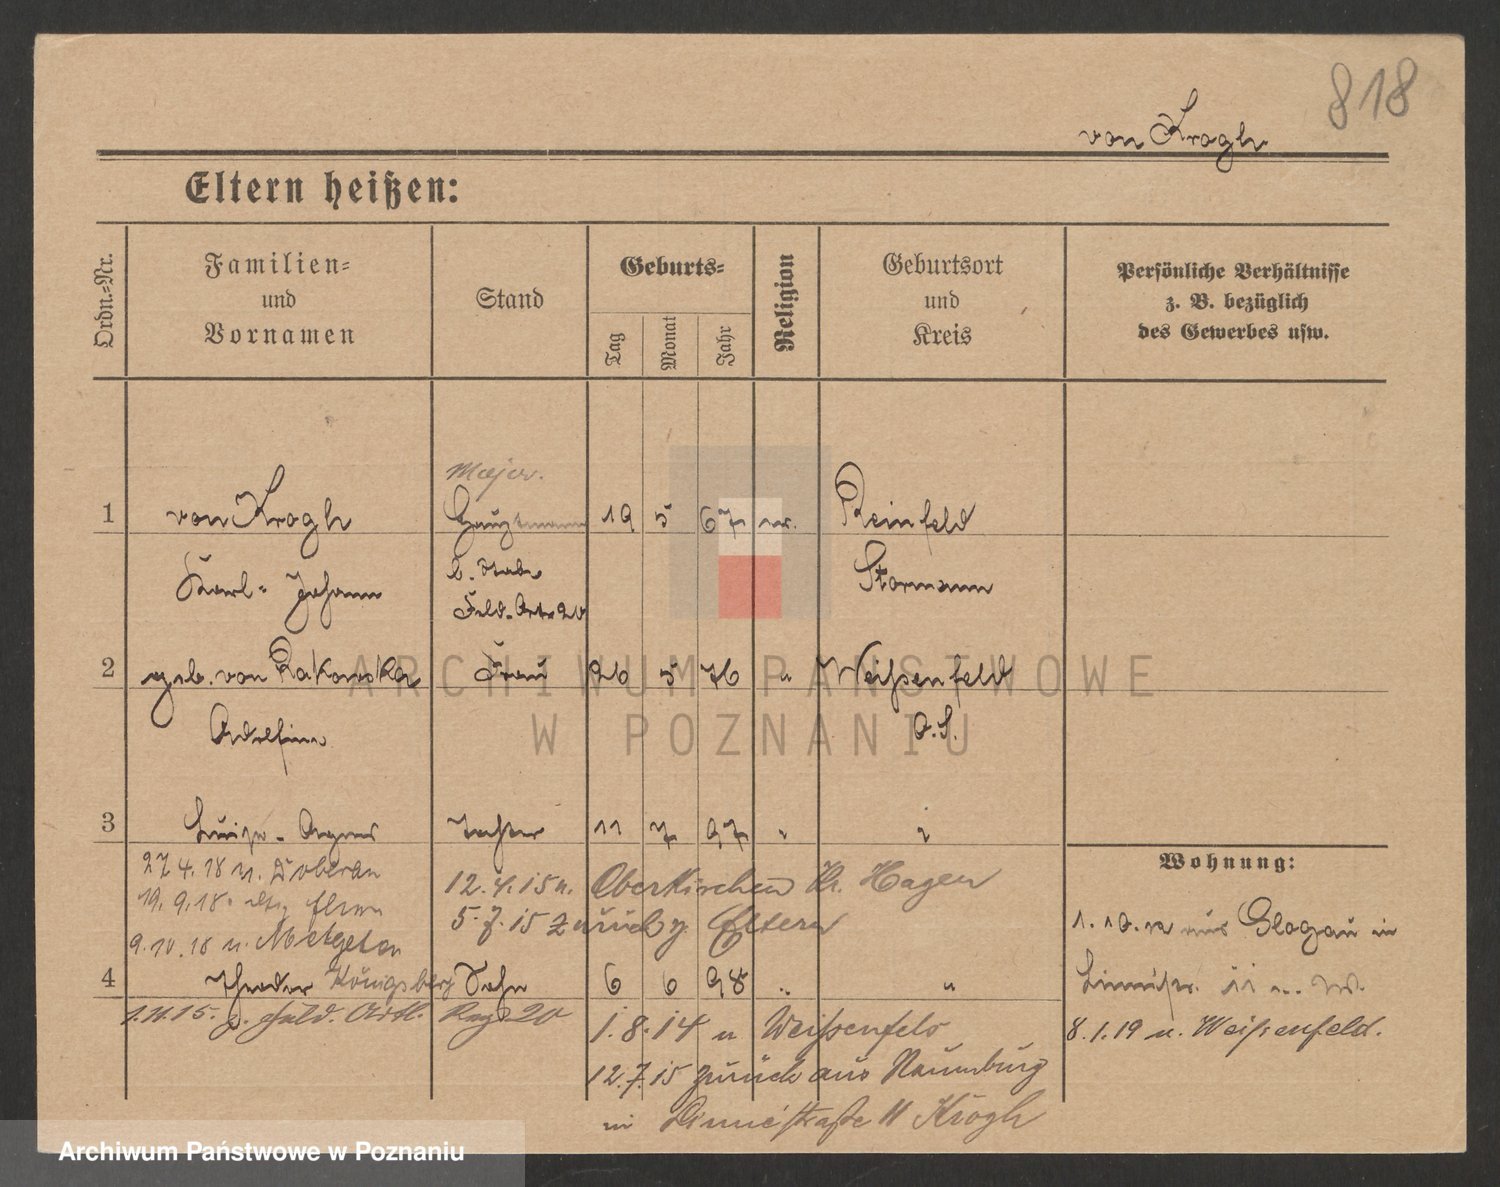 818
von Krogh
Eltern heißen:
Ordn.-Nr.
Familien-
und
Vornamen
Stand
Geburts-
Tag
Monat
Jahr
Religion
Geburtsort
und
Kreis
Persönliche Verhältnisse
z. B. bezüglich
des Gewerbes usw.
Major.
1 von Krogh Hauptmann 19 5 67 Reinfeld
Karl- Johann b. Stabe Stormarn
Feld-Art. 20
2 geb. von Rakowska Frau 26 5 76 " Weißenfeld
O.S.
3 Luise- Agnes Tochter 11 7 97 " "
27.4.18 n. Doberan
19.9.18. Eltern
9.10.18 n. Metgeten
Königsberg
12.4.15 n. Oberkirchen Kr. Hagen
5.7.15 zurück z. Eltern
4 Theodor Sohn 6 6 98 " "
1.11.15. z. Feld. Artl. Rag 20
1.8.14 n Weißenfels
12.7.15 zurück aus Naumburg
in Linnéstraße 11 Krogh
Wohnung:
1.10. aus Glogau in
Linnéstr. 11
8.1.19 n. Weißenfeld.
ARCHIWUM PAŃSTWOWE
W POZNANIU
Archiwum Państwowe w Poznaniu